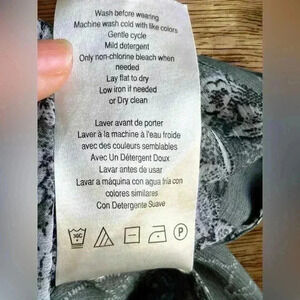 Wash before wearing
Machine wash cold with like colors
Gentle cycle
Mild detergent
Only non-chlorine bleach when
needed
Lay flat to dry
Low iron if needed
or Dry clean
Laver avant de porter
Laver à la machine à l'eau froide
avec des couleurs semblables
Avec Un Détergent Doux
Lavar antes de usar
Lavar a máquina con agua fría con
colores similares
Con Detergente Suave
P